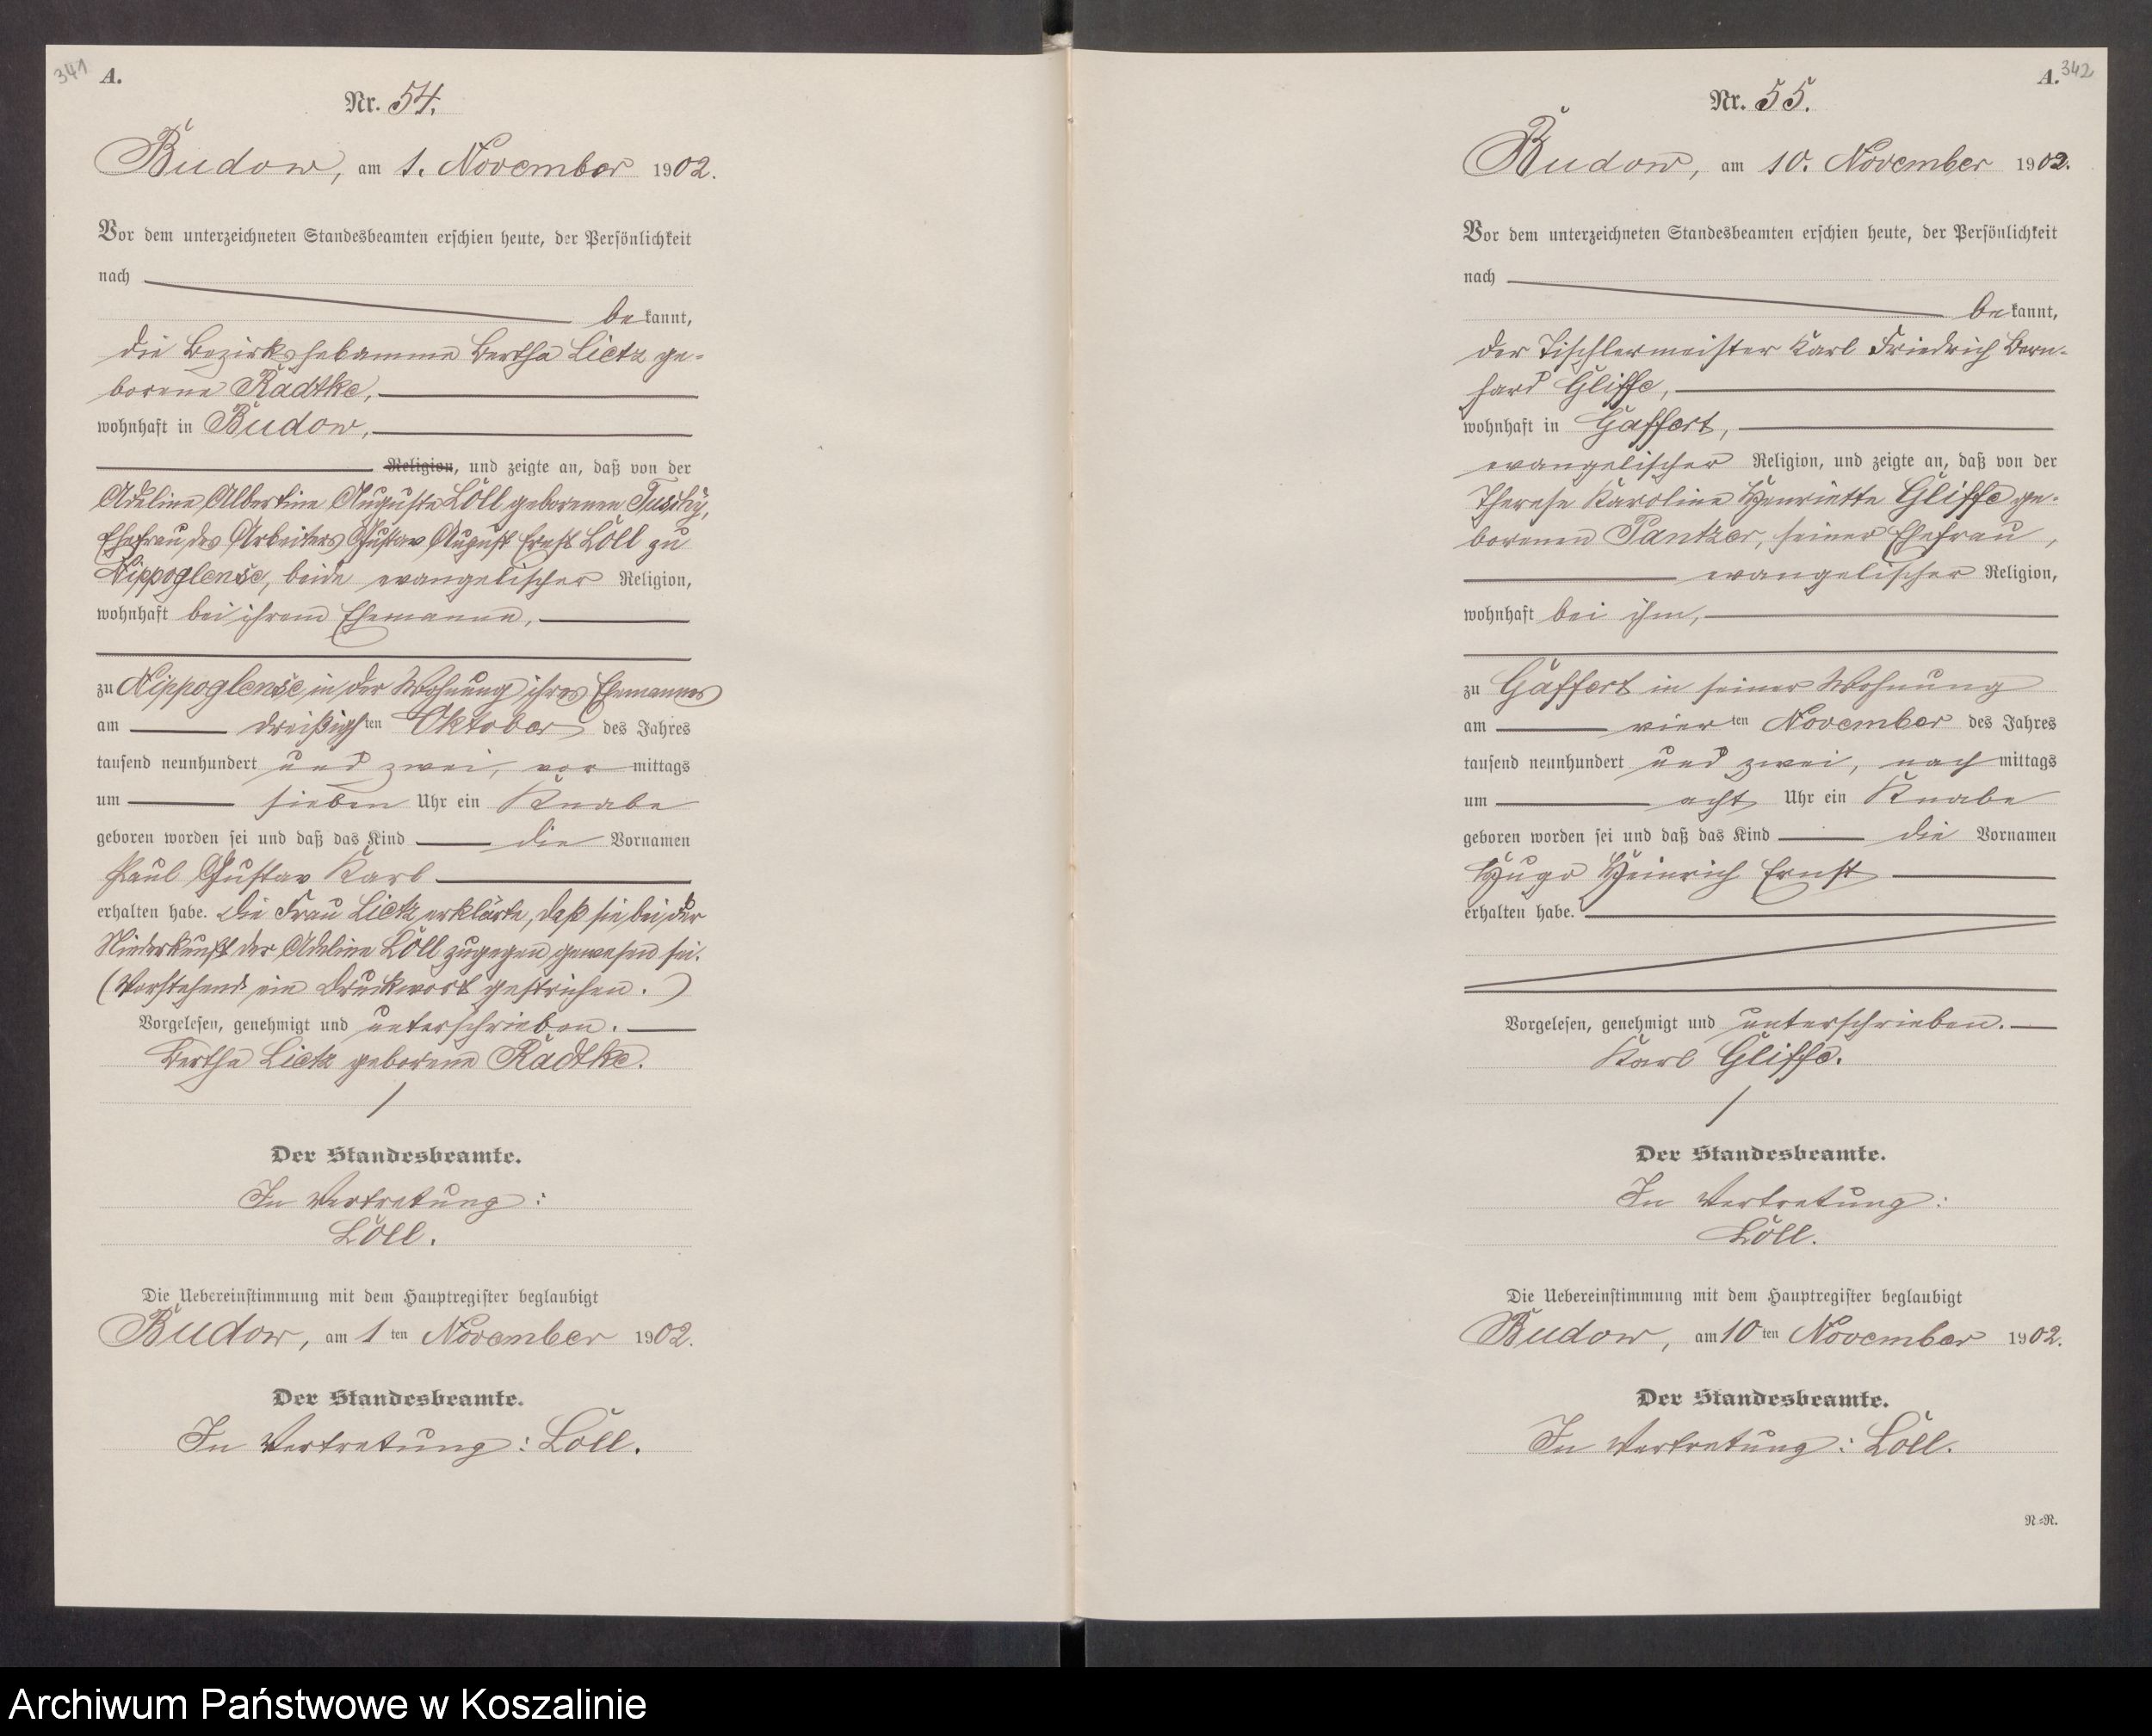 341
A.
Nr. 54.
Budow, am 1. November 1902.
Vor dem unterzeichneten Standesbeamten erschien heute, der Persönlichkeit
nach
bekannt,
die Bezirkshebamme Bertha Lietz ge-
borene Radtke,
wohnhaft in Budow,
Religion, und zeigte an, daß von der
Adeline Albertine Auguste Löll geborenen
Ehefrau des Arbeiters Gustav August Ernst Löll zu
Nippoglense, beide evangelischer Religion,
wohnhaft bei ihrem Ehemanne,
zu Nippoglense in der Wohnung ihres Ehemannes
am dreißigsten Oktober des Jahres
tausend neunhundert und zwei, vormittags
um sieben Uhr ein Knabe
geboren worden sei und daß das Kind die Vornamen
Paul Gustav Karl
erhalten habe. Die Frau Lietz erklärte, daß sie bei der
Niederkunft der Adeline Löll zugegen gewesen sei.
(Vorstehend ein Druckwort gestrichen.)
Vorgelesen, genehmigt und unterschrieben.
Bertha Lietz geborene Radtke.
Der Standesbeamte.
In Vertretung:
Löll.
Die Uebereinstimmung mit dem Hauptregister beglaubigt
Budow, am 1ten November 1902.
Der Standesbeamte.
In Vertretung: Löll.
A. 342
Nr. 55.
Budow, am 10. November 1902.
Vor dem unterzeichneten Standesbeamten erschien heute, der Persönlichkeit
nach
bekannt,
der Tischlermeister Karl Friedrich Bern-
hard Gliffe,
wohnhaft in Gaffert,
evangelischer Religion, und zeigte an, daß von der
Therese Karoline Henriette Gliffe ge-
borenen Pantzer, seiner Ehefrau,
evangelischer Religion,
wohnhaft bei ihm,
zu Gaffert in seiner Wohnung
am vierten November des Jahres
tausend neunhundert und zwei, nachmittags
um acht Uhr ein Knabe
geboren worden sei und daß das Kind die Vornamen
Hugo Heinrich Ernst
erhalten habe.
Vorgelesen, genehmigt und unterschrieben.
Karl Gliffe.
Der Standesbeamte.
In Vertretung:
Löll.
Die Uebereinstimmung mit dem Hauptregister beglaubigt
Budow, am 10ten November 1902.
Der Standesbeamte.
In Vertretung: Löll.
N.=R.
Archiwum Państwowe w Koszalinie